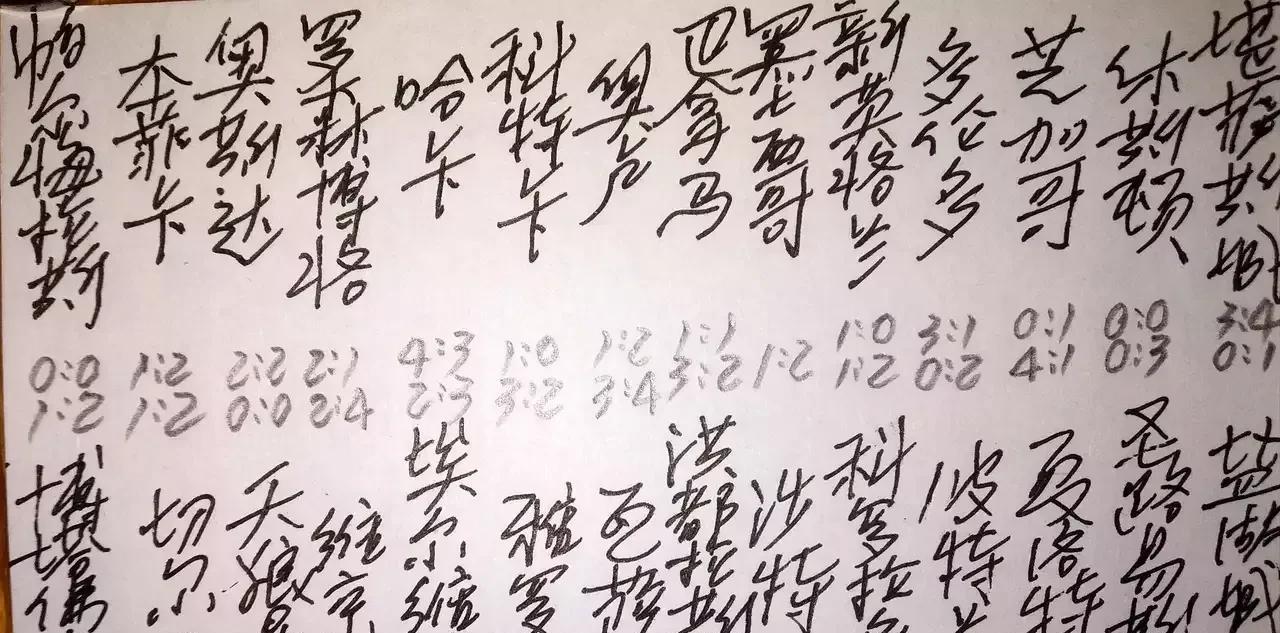 帕尔梅拉斯
0:0
1:2
博塔弗
本菲卡
1:2
1:2
切尔
奥斯达
2:2
0:0
天狼星
罗森博格
2:1
2:4
维京
哈卡
4:3
2:3
埃尔维
科特卡
1:0
3:2
雅罗
奥卢
1:2
3:4
瓦萨
巴拿马
1:1
3:2
洪都拉斯
墨西哥
1:2
沙特
新英格兰
1:0
1:2
科罗拉多
多伦多
3:1
0:2
波特兰
芝加哥
0:1
4:1
夏洛特
休斯顿
0:0
0:3
圣路易斯
堪萨斯城
3:4
0:1
盐湖城